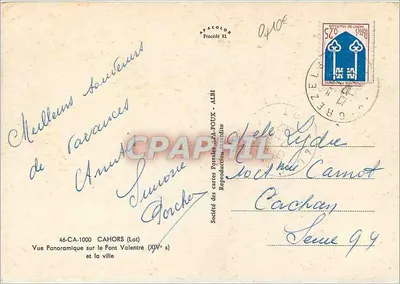 APACOLOR
Procédé 82
0,10€
0,25
GREZELS
Meilleurs souvenirs
de vacances
Amitiés
Simone
Porcher
CPAPHIL.com
Société des cartes Postales APA-POUX - ALBI
Reproduction interdite
Lydie
Carnot
Cachan
Seine 94
46-CA-1000 CAHORS (Lot)
Vue Panoramique sur le Pont Valentré (XIVe s)
et la ville